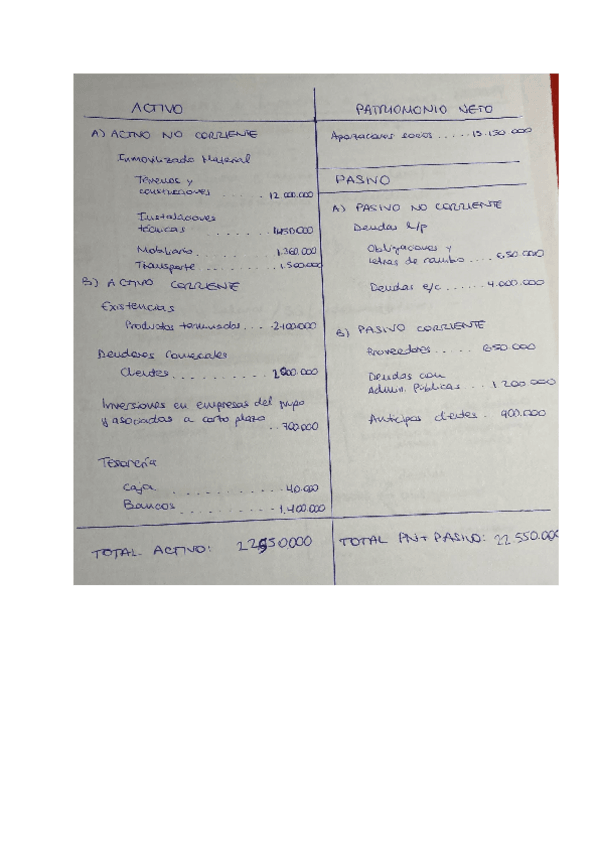 ACTIVO
A) ACTIVO NO CORRIENTE
Inmovilizado Material
Terrenos y
construcciones ....... 12.000.000
Instalaciones
técnicas ........... 1.450.000
Mobiliario .......... 1.360.000
Transporte .......... 1.500.000
B) ACTIVO CORRIENTE
Existencias
Productos terminados .... 2.100.000
Deudores Comerciales
Clientes ...........
Inversiones en empresas del grupo
y asociadas a corto plazo
.. 700.000
Tesorería
Caja .......... 40.000
Bancos .......... 1.400.000
TOTAL ACTIVO: 22550000
PATRIMONIO NETO
Aportaciones socios ..... 15.150.000
PASIVO
A) PASIVO NO CORRIENTE
Deudas l/p
Obligaciones y
letras de cambio .... 650.000
Deudas e/c ...... 4.000.000
B) PASIVO CORRIENTE
Proveedores ..... 650.000
Deudas con
Admin. Públicas ... 1 200 000
Anticipos clientes . 900.000
TOTAL PN + PASIVO: 22 550.000